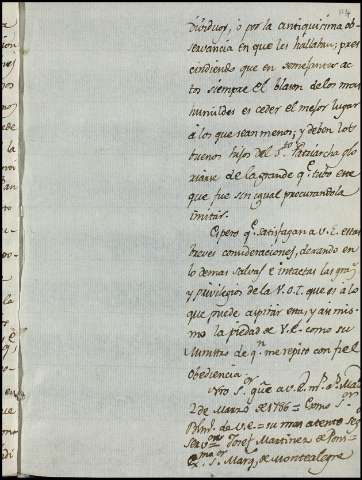 114
dividuos, ó por la antiquisima ob-
servancia en que les hallaban; pres-
cindiendo que en semejantes ac-
tos siempre el blason de los mas
humildes es ceder el mejor lugar
á los que sean menos; y deben los
buenos hijos del Sto. Patriarcha glo
riarse de la grande q.e tubo este
que fue sin igual procurandola
imitar.
Espero q.e satisfagan a V.E. estas
breves consideraciones, dexando en
lo demas salvas é intactas las gra.s
y privilegios de la V.O.T. que es á lo
que puede aspirar esta, y aun mis-
mo la piedad de V.E. como su
de q.n me repito con fiel
obediencia.
Nro S.or gue a V.E. m.s a.s Mad.
2 de Marzo de 1786 = Exmo S.or
de V.E. = su mas atento seg.
serv.or Josef Martinez de Pons =
Exmo S.or Marq.s de Montealegre